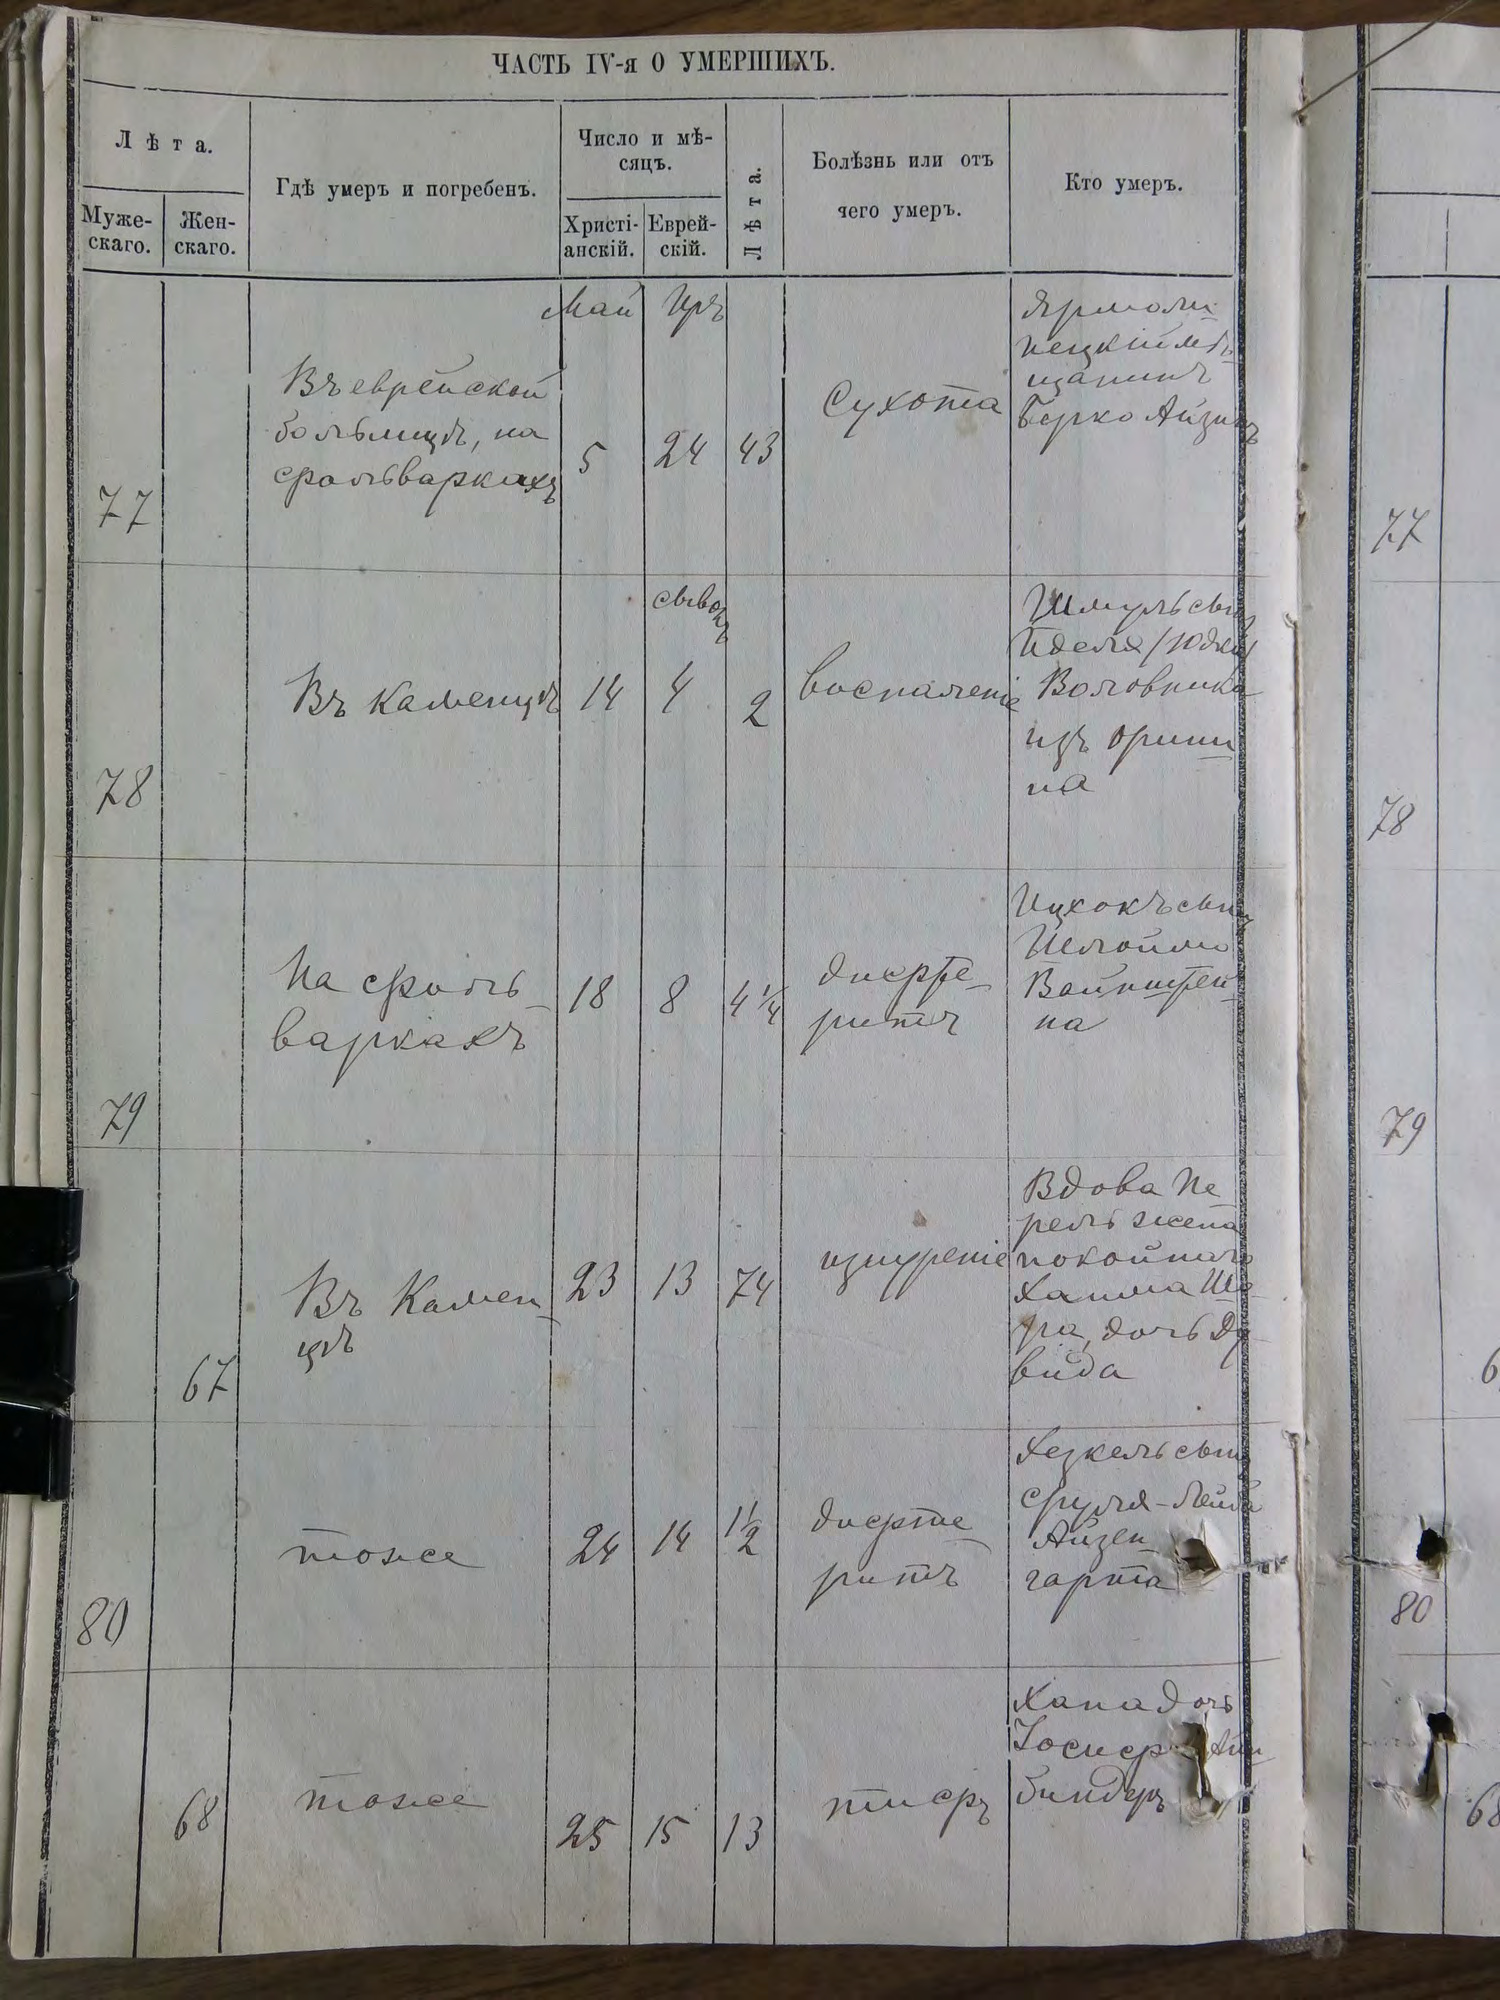 ЧАСТЬ IV-я О УМЕРШИХЪ.
Лѣта.
Муже-
скаго.
Жен-
скаго.
Гдѣ умеръ и погребенъ.
Число и мѣ-
сяцъ.
Христі-
анскій.
Еврей-
скій.
Лѣта.
Болѣзнь или отъ
чего умеръ.
Кто умеръ.
77
Въ еврейской
больницѣ, на
фольваркахъ
Май
5
Иръ
24
43
Сухота
Ярмоли-
нецкій мѣ-
щанинъ
Берко Айзинъ
77
78
Въ Каменцѣ
14
сывонъ
4
2
воспаленіе
Шмуль сынъ
Иделя (Юдки)
Воловника
изъ Орини-
на
78
79
На фоль-
варкахъ
18
8
4 1/4
дифте-
ритъ
Ицхокъ сынъ
Шлоймы
Вайнштей-
на
79
67
Въ Камен-
цѣ
23
13
74
изнуреніе
Вдова Пе
рель жена
покойнаго
Хаима Ше-
ра, дочь Да-
вида
6
80
тоже
24
14
1 1/2
дифте-
ритъ
Хезкель сынъ
Сруля-Лейба
Айзен-
гарта
80
68
тоже
25
15
13
тифъ
Хана дочь
Іосифа
биндеръ
68